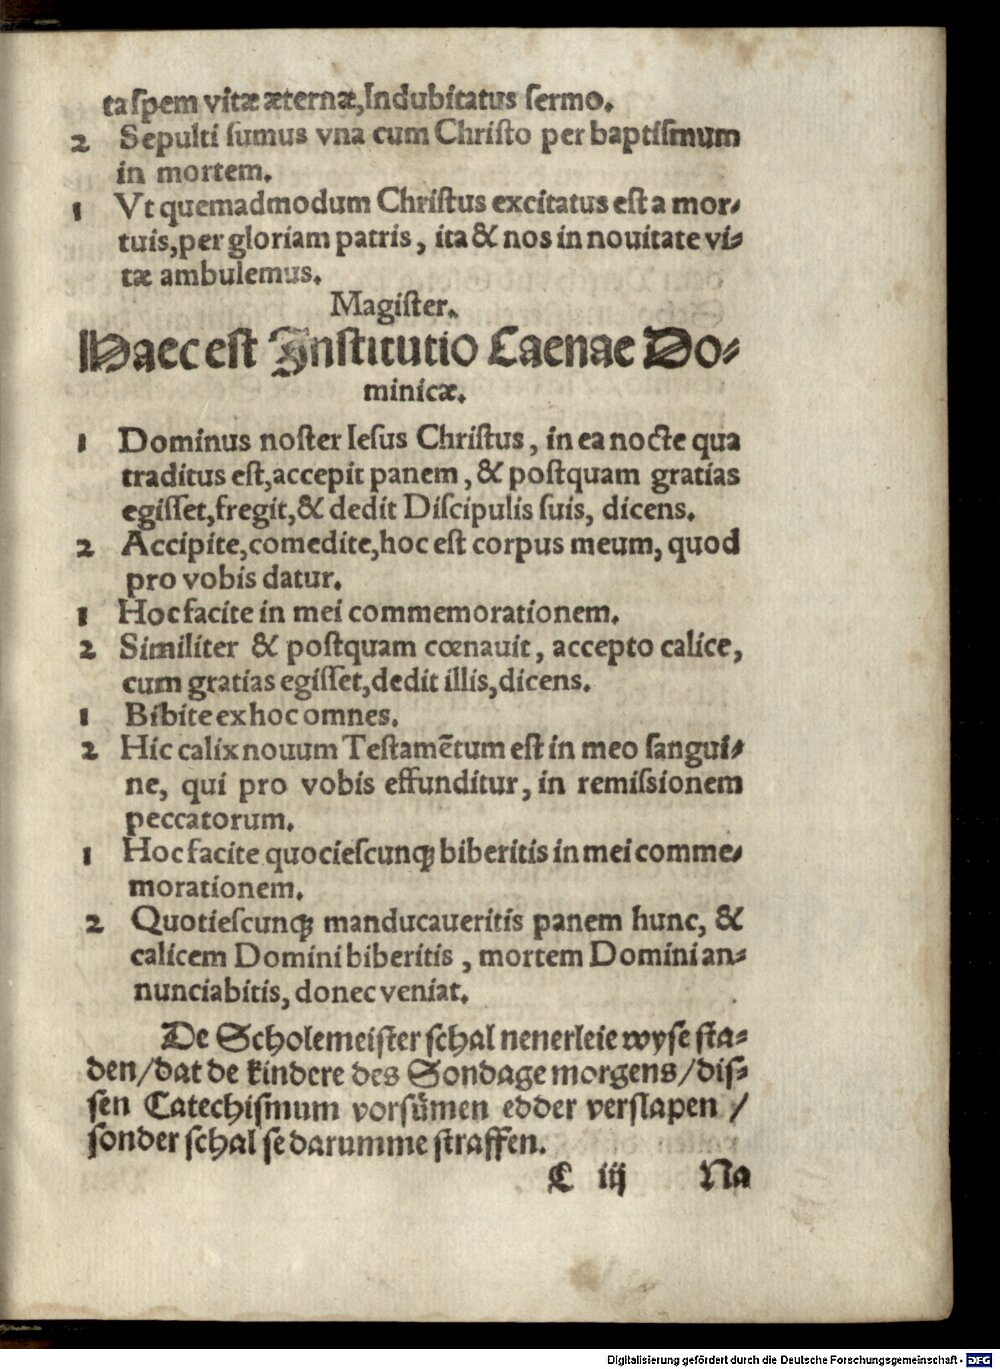 ta ſpem vitæ æternæ, Indubitatus ſermo.
2 Sepulti ſumus vna cum Chriſto per baptiſmum
in mortem.
1 Vt quemadmodum Chriſtus excitatus eſt a mor⸗
tuis, per gloriam patris, ita & nos in nouitate vi⸗
tæ ambulemus.
Magiſter.
Haec eſt Inſtitutio Caenae Do⸗
minicæ.
1 Dominus noſter Ieſus Chriſtus, in ea nocte qua
traditus eſt, accepit panem, & poſtquam gratias
egiſſet, fregit, & dedit Diſcipulis ſuis, dicens.
2 Accipite, comedite, hoc eſt corpus meum, quod
pro vobis datur.
1 Hoc facite in mei commemorationem.
2 Similiter & poſtquam cœnauit, accepto calice,
cum gratias egiſſet, dedit illis, dicens.
1 Bibite ex hoc omnes.
2 Hic calix nouum Teſtamẽtum eſt in meo ſangui⸗
ne, qui pro vobis effunditur, in remiſsionem
peccatorum.
1 Hoc facite quocieſcunqꝫ biberitis in mei comme⸗
morationem.
2 Quotieſcunqꝫ manducaueritis panem hunc, &
calicem Domini biberitis, mortem Domini an⸗
nunciabitis, donec veniat.
De Scholemeiſter ſchal nenerleie wyſe ſta⸗
den/ dat de kindere des Sondage morgens/ diſ⸗
ſen Catechiſmum vorſuͤmen edder verſlapen /
ſonder ſchal ſe darumme ſtraffen.
C iij Na
Digitalisierung gefördert durch die Deutsche Forschungsgemeinschaft - DFG